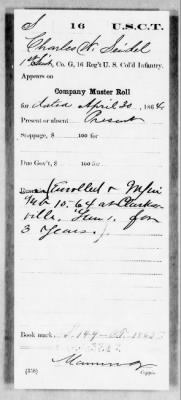 S 16 U.S.C.T.
Charles W. Seidel
1st Lieut, Co. G, 16 Reg't U. S. Col'd Infantry.
Appears on
Company Muster Roll
for dated April 30, 1864.
Present or absent Present
Stoppage, $ 100 for
Due Gov't, $ 100 for
Remarks: Enrolled &
10. 64 at Clarks-
ville, Tenn. for
3 Years.
Book mark:
(358) Copyist.